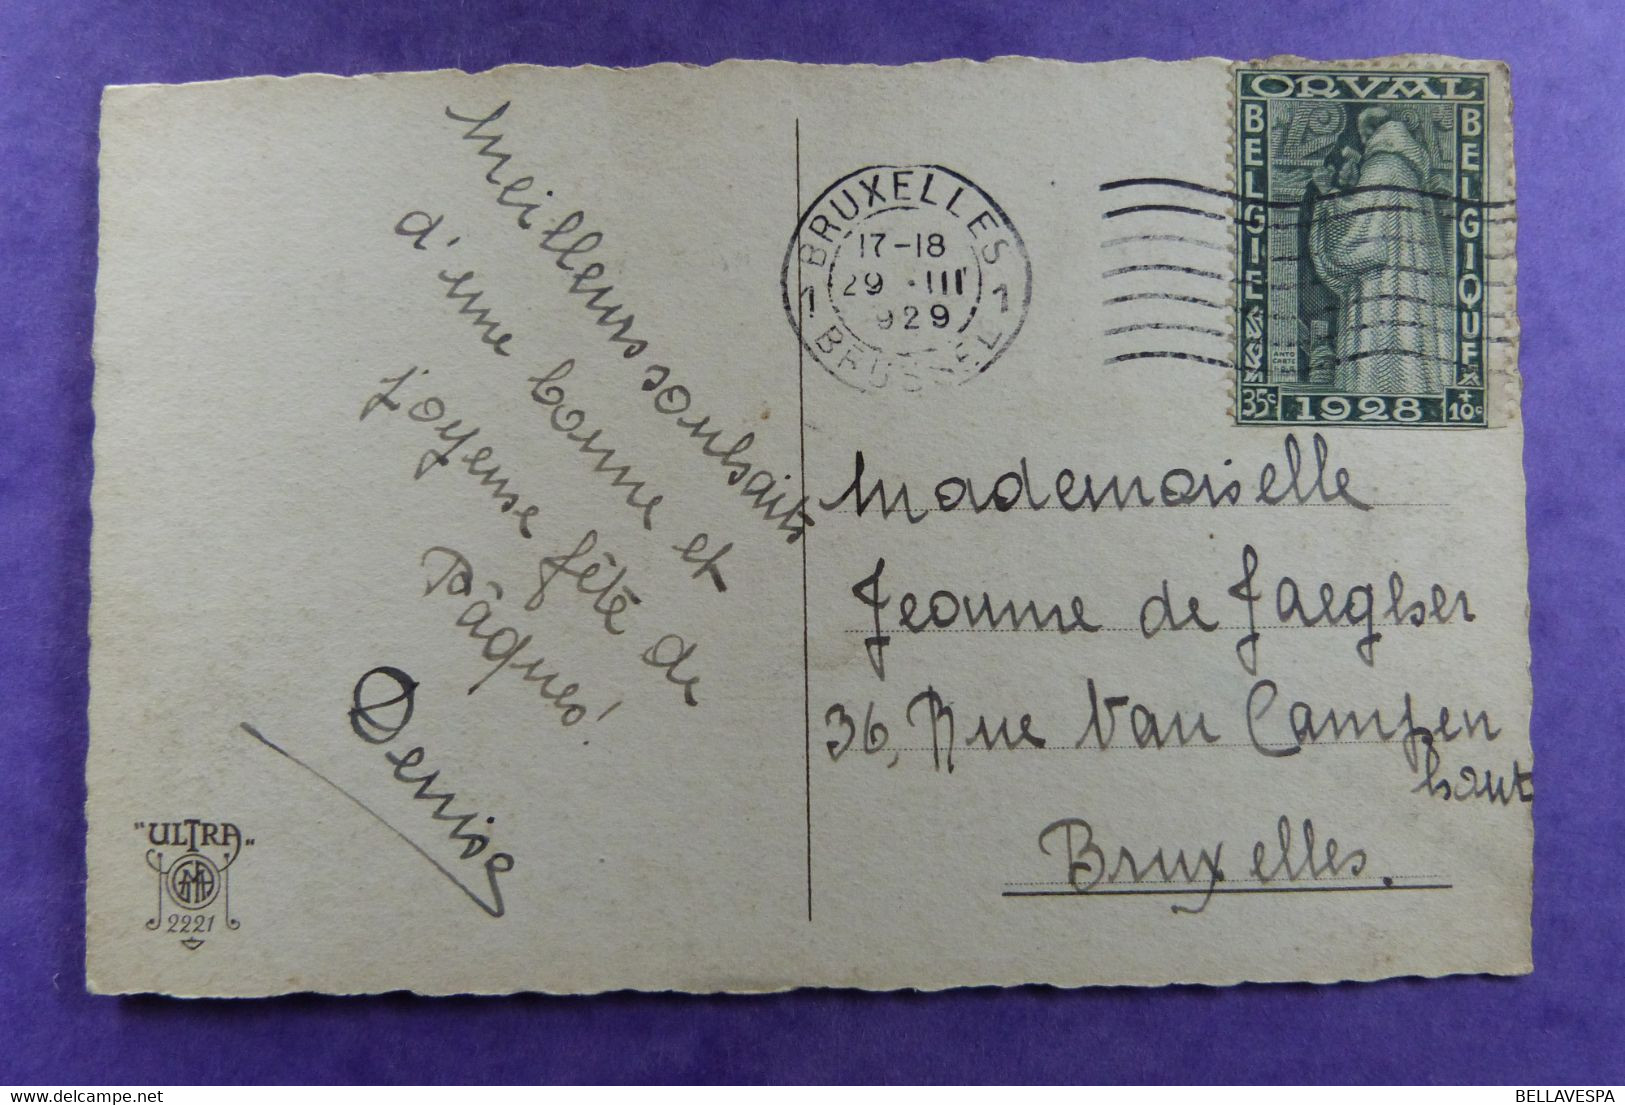 Meilleurs souhaits
d'une bonne et
joyeuse fête de
Pâques!
Denise
"ULTRA"
2221
BRUXELLES
17-18
29 III
929
1 1
BRUSSEL
ORVAL
BELGIE
BELGIQUE
35c
1928
+10c
Mademoiselle
Jeanne de Jaegher
36, Rue Van Campen
haut
Bruxelles.
BELLAVESPA